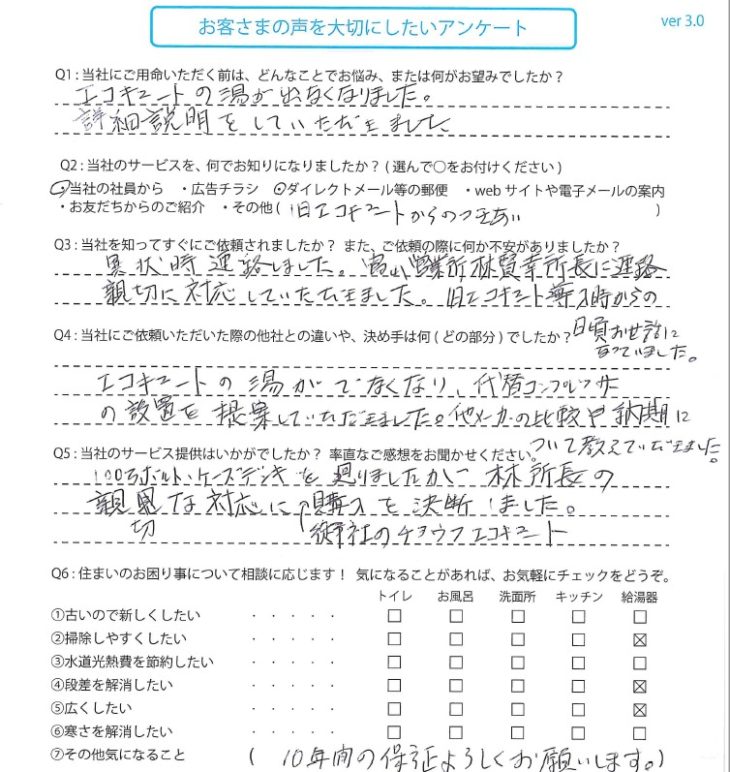 お客さまの声を大切にしたいアンケート
ver 3.0
Q1 : 当社にご用命いただく前は、どんなことでお悩み、または何がお望みでしたか?
エコキュートの湯が出なくなりました。
詳細説明をしていただきました
Q2 : 当社のサービスを、何でお知りになりましたか? ( 選んで○をお付けください )
・当社の社員から ・広告チラシ ・ダイレクトメール等の郵便 ・web サイトや電子メールの案内
・お友だちからのご紹介 ・その他 ( 旧エコキュートからのつきあい )
Q3 : 当社を知ってすぐにご依頼されましたか? また、ご依頼の際に何か不安がありましたか?
異状時連絡しました。富山営業所林賢幸所長に連絡
親切に対応していただきました。旧エコキュート導入時からの
日頃お世話に
なっていました。
Q4 : 当社にご依頼いただいた際の他社との違いや、決め手は何 ( どの部分 ) でしたか?
エコキュートの湯がでなくなり、代替コンプレッサー
の設置を提案していただきました。他メーカーの比較や納期に
ついて教えていただきました。
Q5 : 当社のサービス提供はいかがでしたか? 率直なご感想をお聞かせください。
100満ボルト、ケーズデンキを廻りましたが 林所長の
親切な対応に購入を決断しました。
御社のチョウフエコキュート
Q6 : 住まいのお困り事について相談に応じます! 気になることがあれば、お気軽にチェックをどうぞ。
トイレ お風呂 洗面所 キッチン 給湯器
①古いので新しくしたい ・・・・・ □ □ □ □ □
②掃除しやすくしたい ・・・・・ □ □ □ □ ☒
③水道光熱費を節約したい ・・・・・ □ □ □ □ □
④段差を解消したい ・・・・・ □ □ □ □ ☒
⑤広くしたい ・・・・・ □ □ □ □ ☒
⑥寒さを解消したい ・・・・・ □ □ □ □ □
⑦その他気になること ( 10年間の保証よろしくお願いします。)